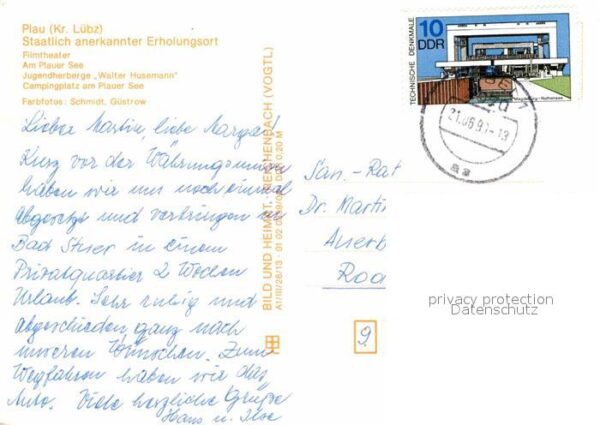 Plau (Kr. Lübz)
Staatlich anerkannter Erholungsort
Filmtheater
Am Plauer See
Jugendherberge „Walter Husemann"
Campingplatz am Plauer See
Farbfotos: Schmidt, Güstrow
Lieber Martin, liebe
Kurz vor der Währungsunion
haben wir uns noch einmal
abgesetzt und verbringen in
Bad Stuer in einem
Privatquartier 2 Wochen
Urlaub. Sehr ruhig und
abgeschieden ganz nach
unseren Wünschen. Zum
Wegfahren haben wir das
Auto. Viele herzliche Grüße
Hans u. Ilse
BILD UND HEIMAT, REICHENBACH (VOGTL)
A1/III/26/13 01 02 0,20 M
TECHNISCHE DENKMALE
10
DDR
Magdeburg-Rothensee
21.06.9
San.-Rat
Dr. Martin
Auerb
Ro
9
privacy protection
Datenschutz